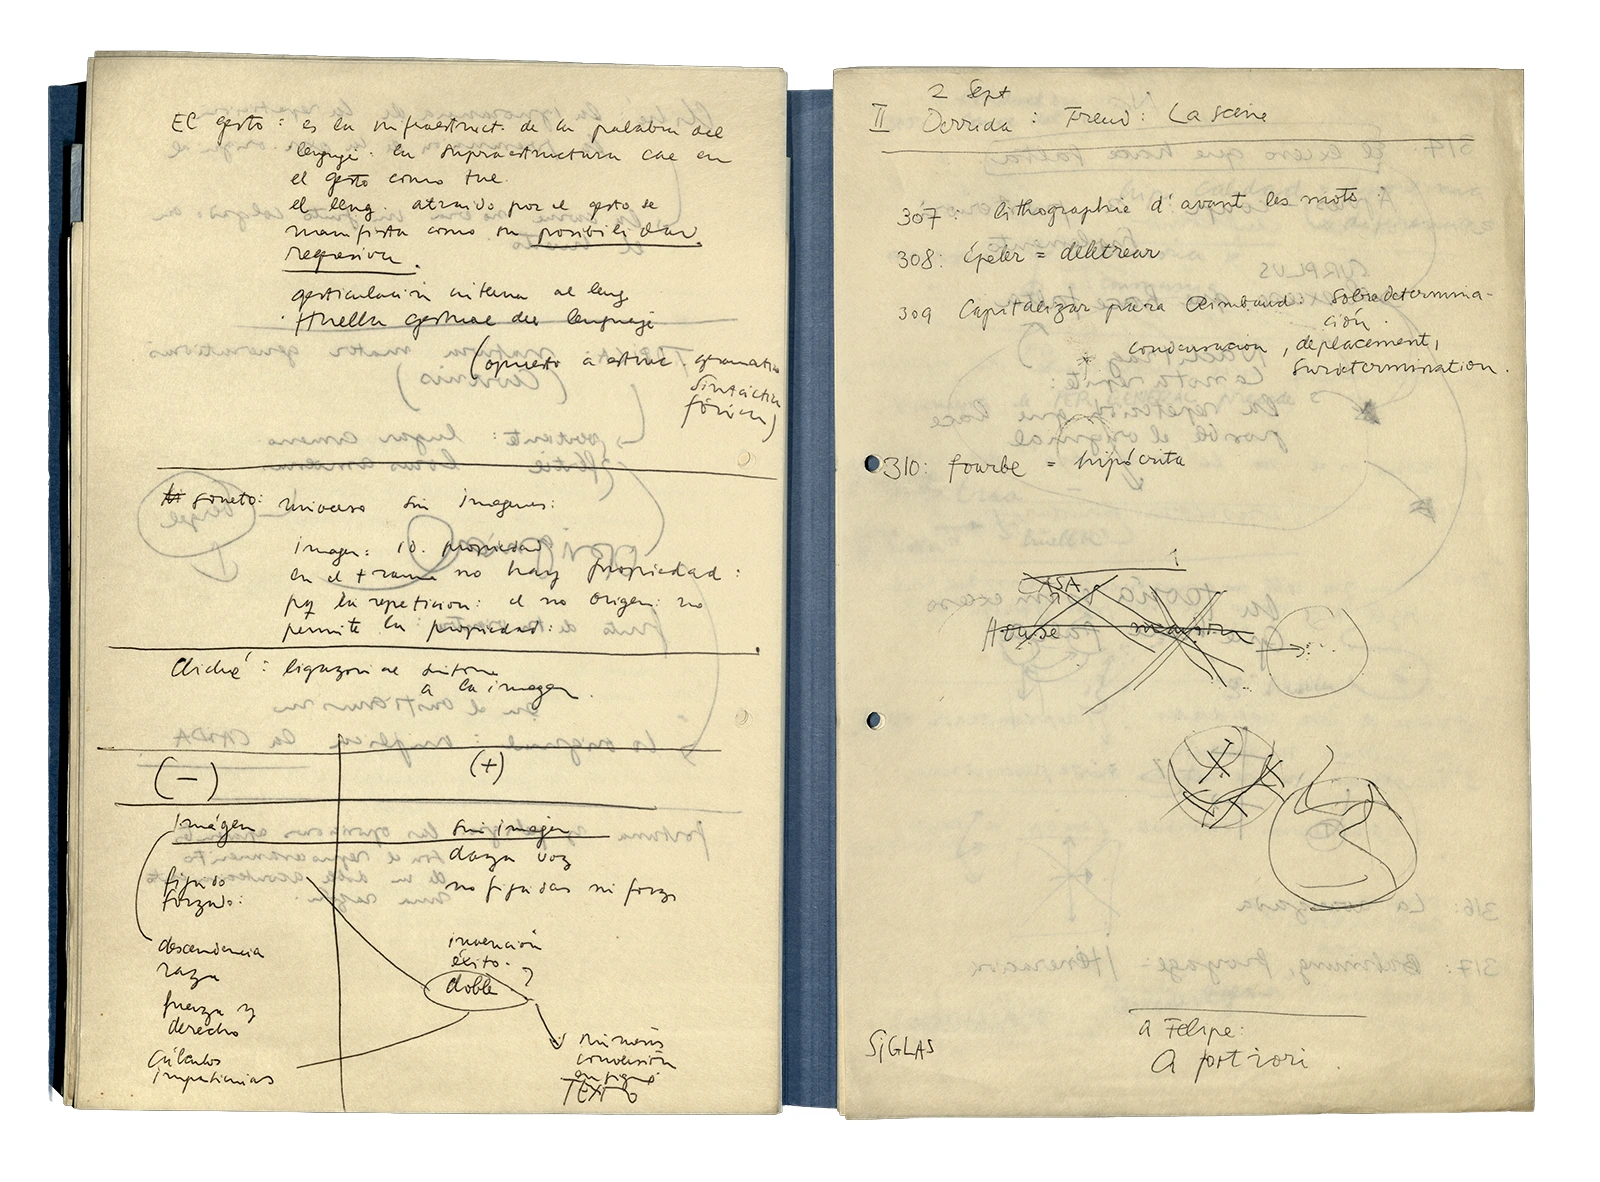 El gesto: es la infraestruct. de la palabra del
lenguaje. la supraestructura cae en
el gesto como tue.
el leng. atraído por el gesto se
manifista como su posibilidad
regresiva.
gesticulación interna al leng
Huella gestual del lenguaje
(opuesto a estruc. gramatica
sintáctica
fónica)
soneto: universo sin imagenes:
imagen: propiedad
en el trauma no hay propiedad:
pq la repeticion: el no origen: no
permite la propiedad.
Cliché: ligazon al
a la imagen.
(-) (+)
imágen sin imagen
danza voz
fijado no fijadas ni forz
forzado:
descendencia invención
raza éxito.
doble
fuerza y
derecho
cálculos números
impaticias conversión
en signo
TEXTO
2 Sept
II Derrida: Freud: La scène
307: lithographie d'avant les mots
308: épeler = deletrear
309 Capitalizar para Rimbaud: sobredetermina-
ción.
condensacion, deplacement,
surdetermination.
310: fourbe = hipócrita
CASA
House maison
a Felipe:
A fortiori.
SIGLAS